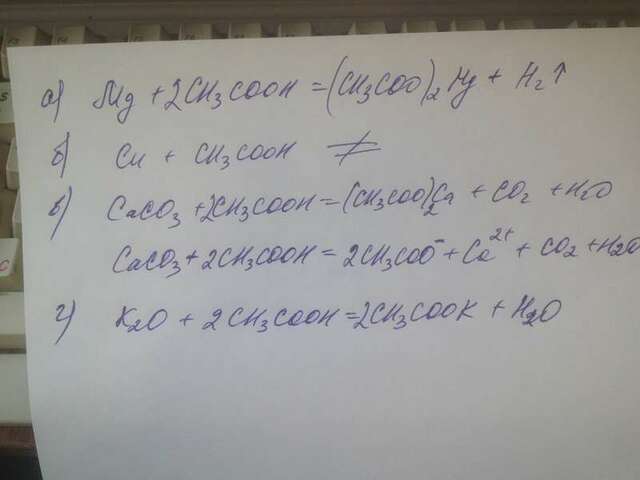 а) Mg + 2CH₃COOH = (CH₃COO)₂Mg + H₂↑
б) Cu + CH₃COOH ≠
в) CaCO₃ + 2CH₃COOH = (CH₃COO)₂Ca + CO₂ + H₂O
CaCO₃ + 2CH₃COOH = 2CH₃COO⁻ + Ca²⁺ + CO₂ + H₂O
г) K₂O + 2CH₃COOH = 2CH₃COOK + H₂O